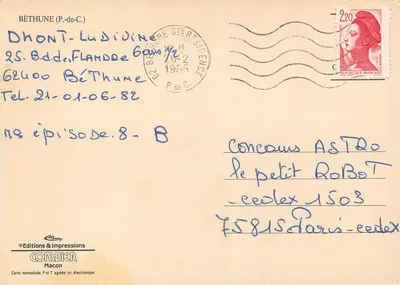 BÉTHUNE (P.-de-C.)
DHONT-LUDIVINE
6ans 1/2
25. B.d.des FLANDRE
62400 BéTHUNE
Tel. 21-01-06-82
n8 épisode. 8 - B
62 BETHUNE RESIDENCE
1986
P. de C.
2,20
REPUBLIQUE FRANÇAISE
CONCOURS ASTRO
le petit ROBOT
-cedex 1503
75815 Paris-cedex
Editions & Impressions
COMBIER
Macon
Carte normalisée P et T agréée tri électronique